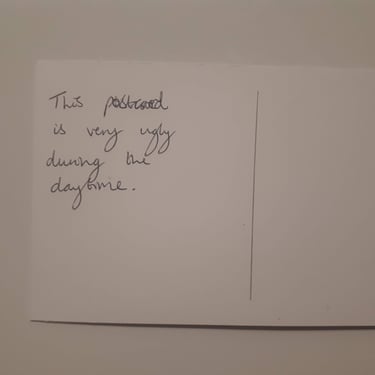 This postcard
is very ugly
during the
daytime.